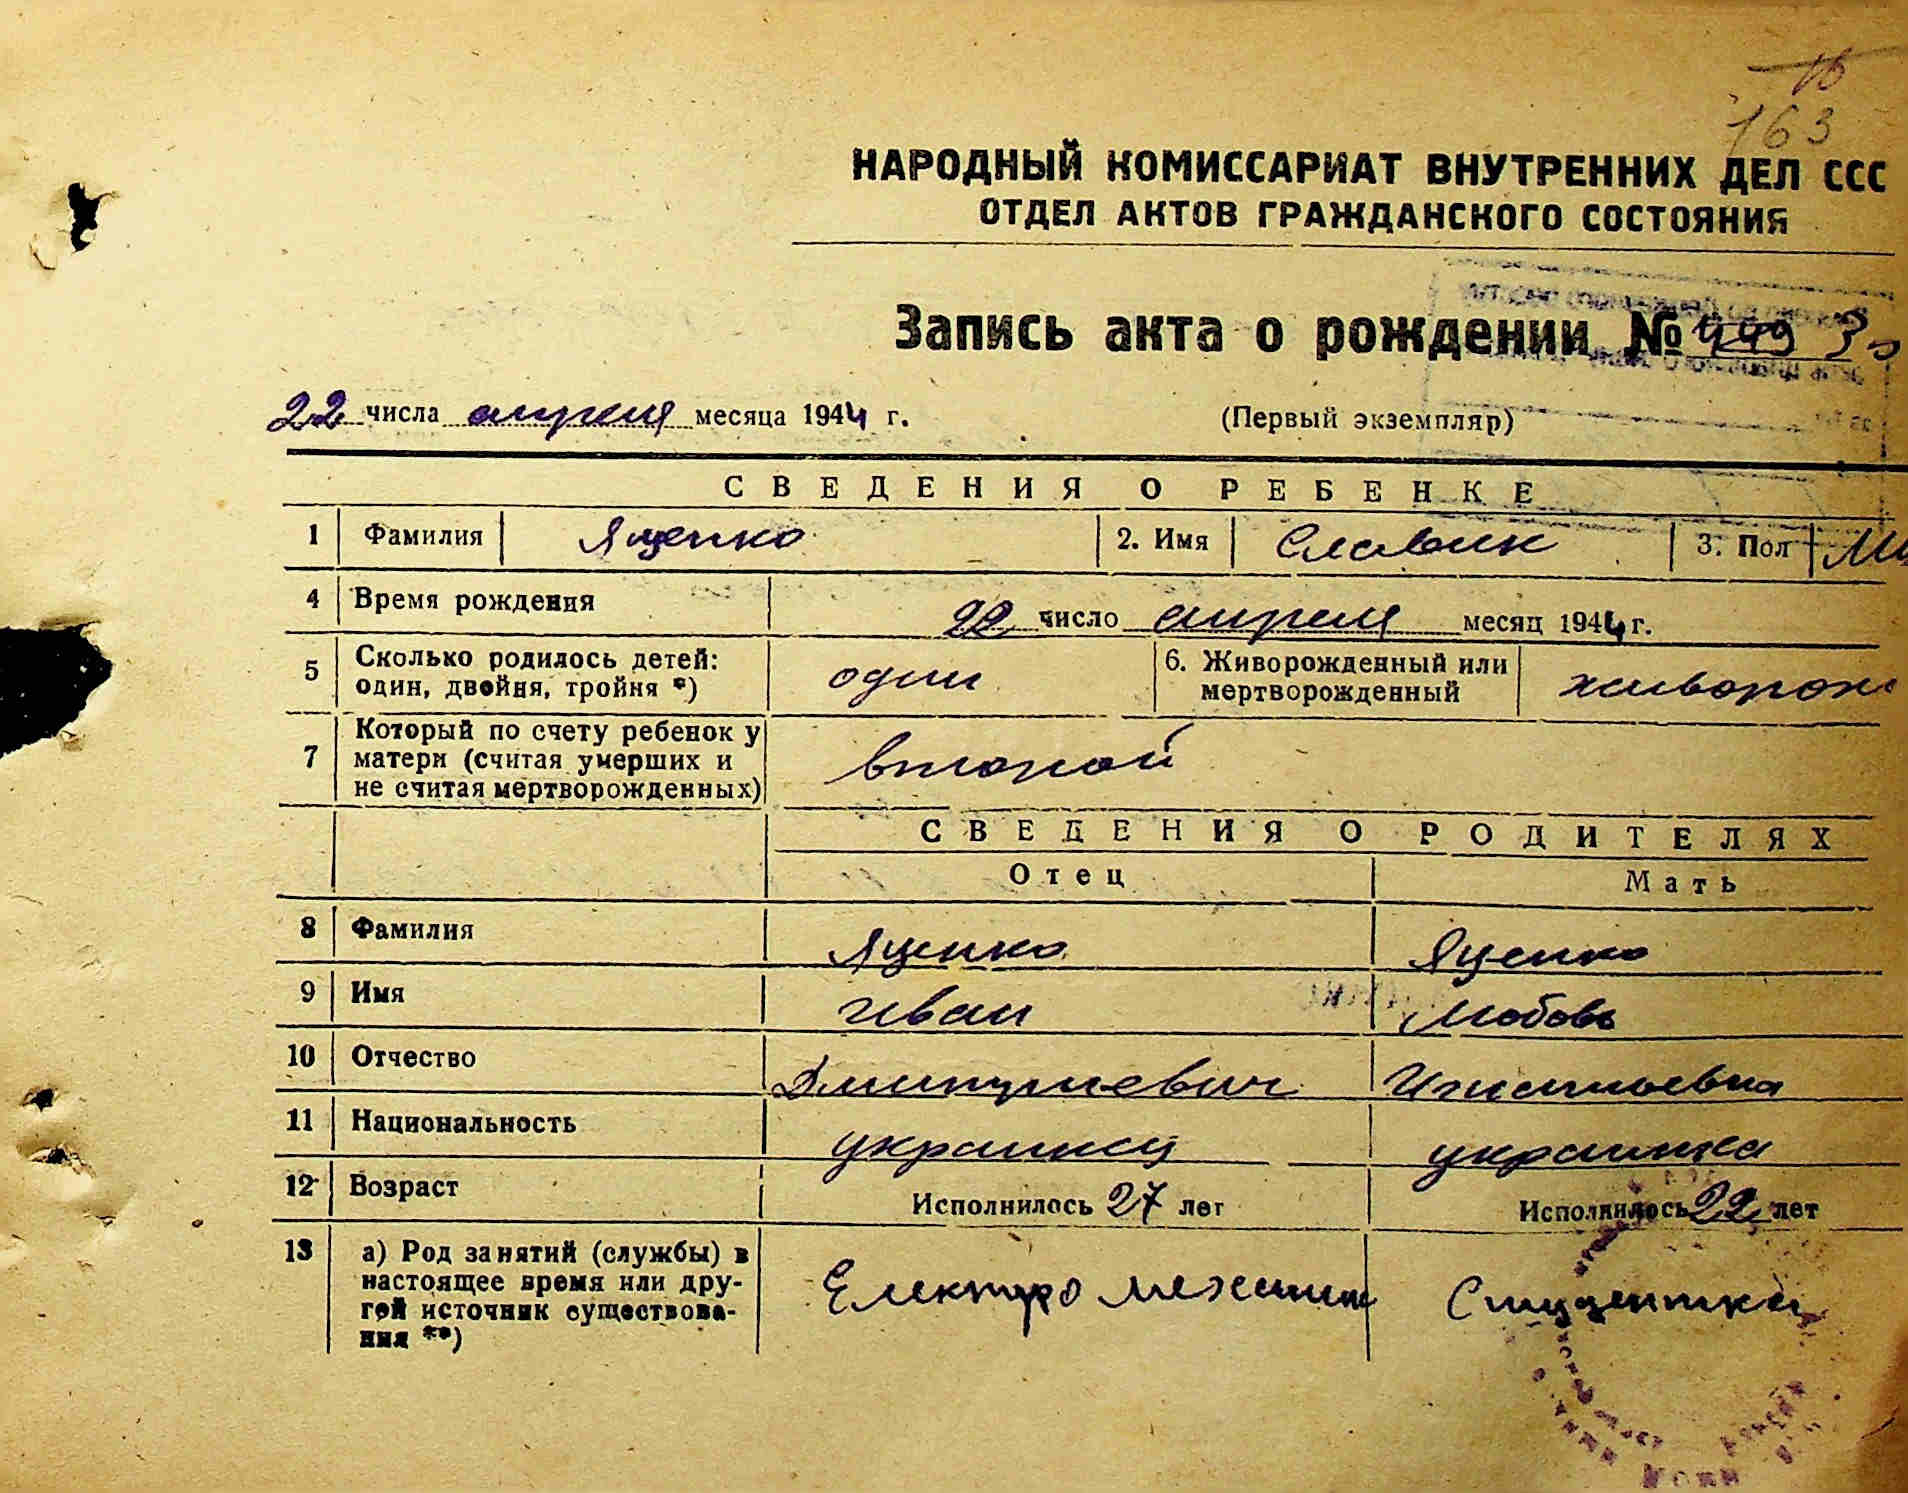 163
НАРОДНЫЙ КОМИССАРИАТ ВНУТРЕННИХ ДЕЛ ССС
ОТДЕЛ АКТОВ ГРАЖДАНСКОГО СОСТОЯНИЯ
Запись акта о рождении №
22 числа апреля месяца 1944 г. (Первый экземпляр)
СВЕДЕНИЯ О РЕБЕНКЕ
1 Фамилия Яценко 2. Имя Славик 3. Пол
4 Время рождения 22 число апреля месяц 1944 г.
5 Сколько родилось детей: один, двойня, тройня *) один 6. Живорожденный или мертворожденный живорож
7 Который по счету ребенок у матери (считая умерших и не считая мертворожденных) второй
СВЕДЕНИЯ О РОДИТЕЛЯХ
Отец Мать
8 Фамилия Яценко Яценко
9 Имя Иван Любовь
10 Отчество Дмитриевич Игнатьевна
11 Национальность украинец украинка
12 Возраст Исполнилось 27 лет Исполнилось 22 лет
13 а) Род занятий (службы) в настоящее время или другой источник существования **) Електро механик Студентка